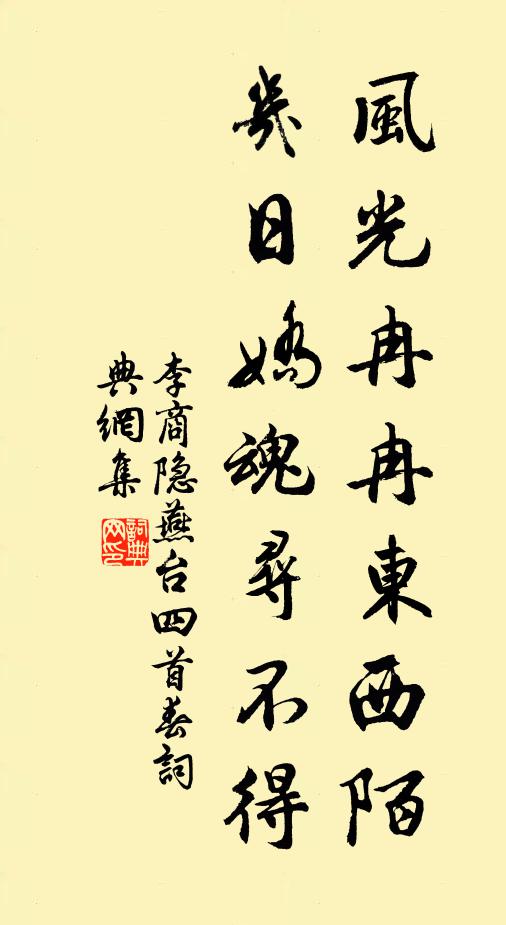 風光冉冉東西陌
幾日嬌魂尋不得
李商隐燕台四首春詞
典網集
詞典
网印